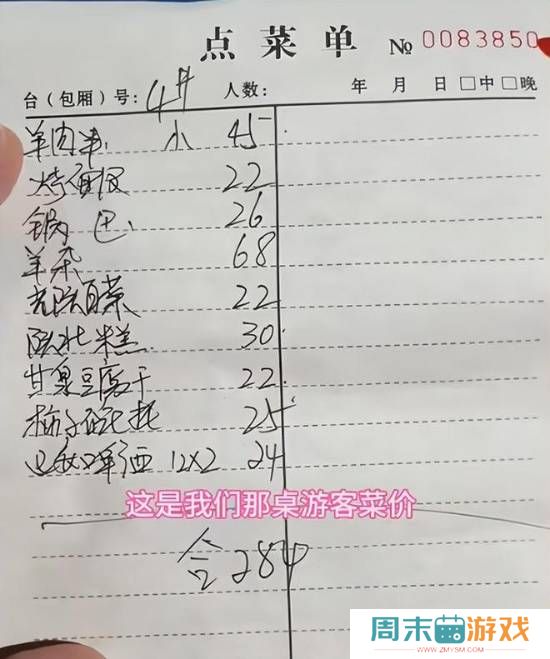 点菜单 № 0083850
台（包厢）号： 4# 人数： 年 月 日 □中 □晚
羊肉串 小 45
烤面 22
锅巴 26
羊杂 68
白菜 22
陕北糕 30
甘泉豆腐干 22
柿子 25
啤酒 12X2 24
这是我们那桌游客菜价
合284
周末游戏
WWW.ZMYSM.COM